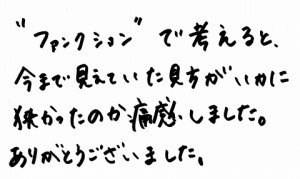 "ファンクション"で考えると、
今まで見えていた見方がいかに
狭かったのか痛感しました。
ありがとうございました。